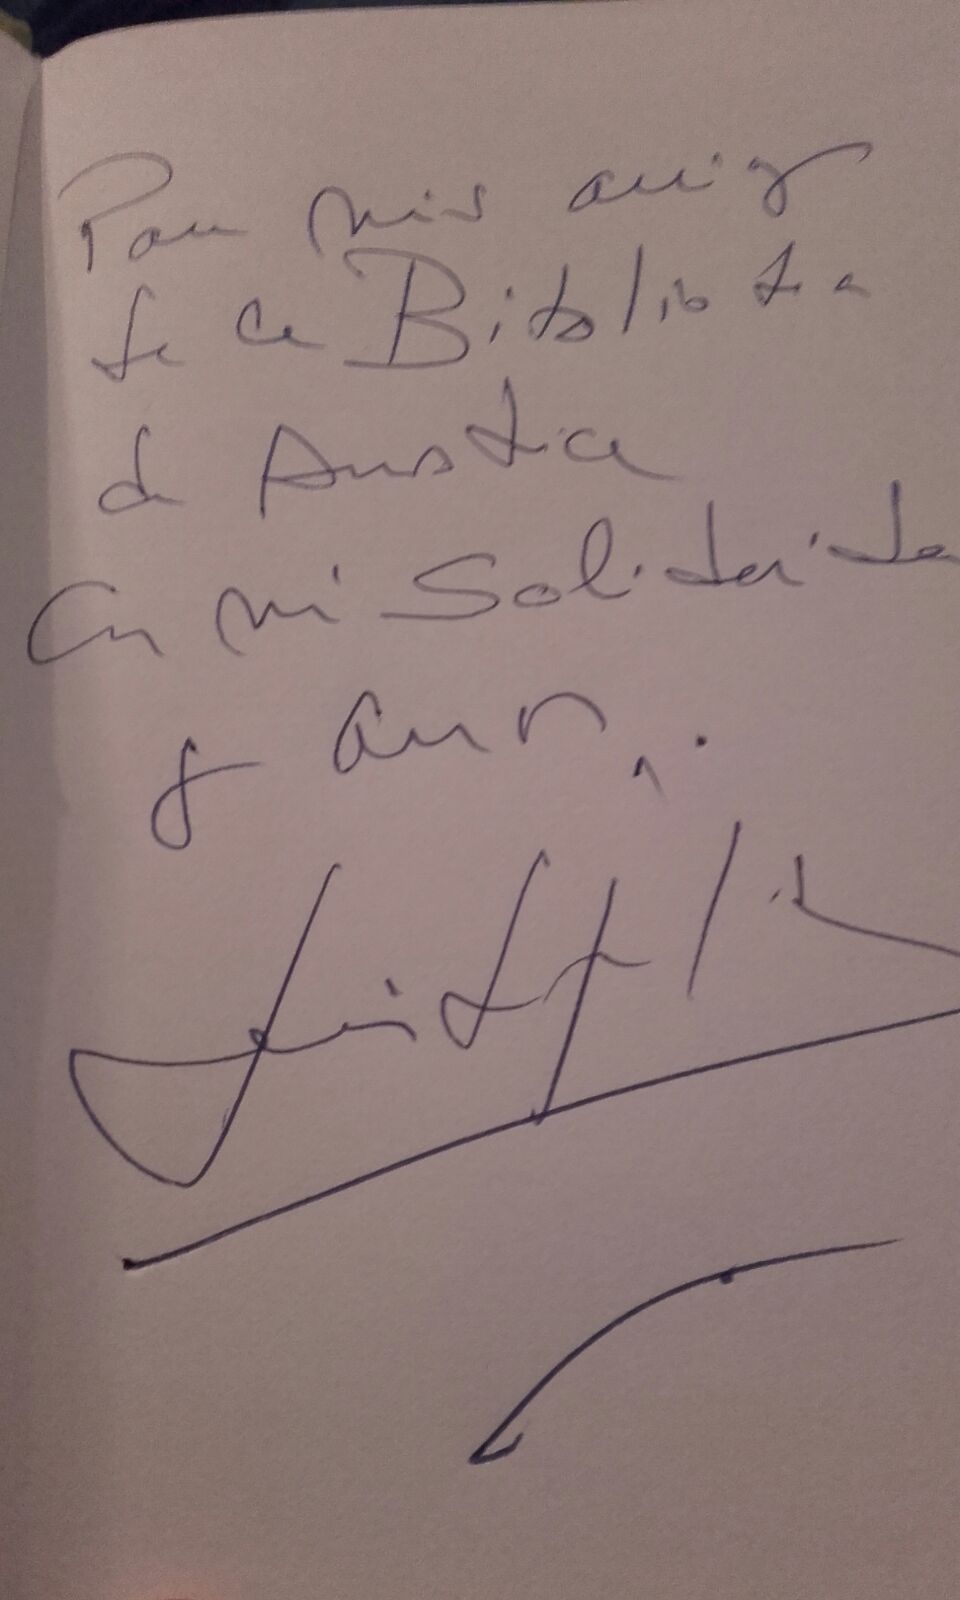 Para mis amigos
de la Biblioteca
de Austria
Con mi Solidaridad
y amor,